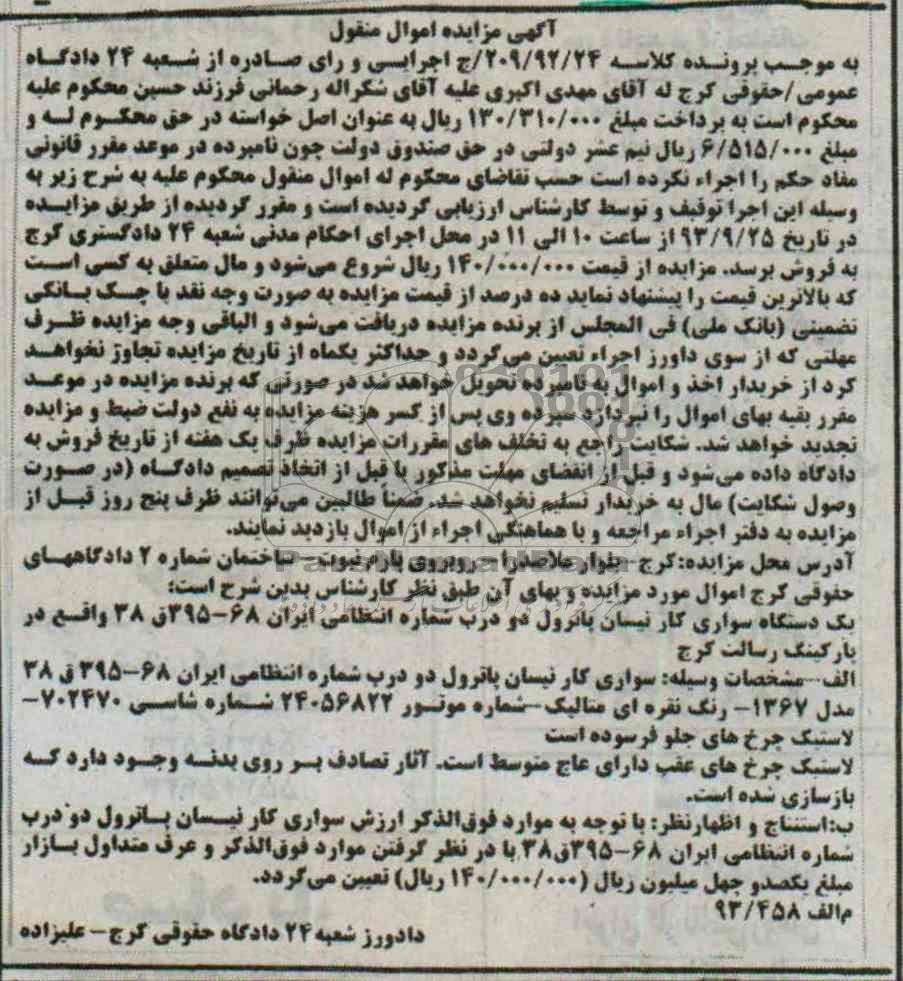 آگهی مزایده اموال منقول
به موجب پرونده کلاسه ۲۰۹/۹۲/۲۴/ج اجرایی و رای صادره از شعبه ۲۴ دادگاه
عمومی/حقوقی کرج له آقای مهدی اکبری علیه آقای شکراله رحمانی فرزند حسین محکوم علیه
محکوم است به پرداخت مبلغ ۱۳۰/۳۱۰/۰۰۰ ریال به عنوان اصل خواسته در حق محکوم له و
مبلغ ۶/۵۱۵/۰۰۰ ریال نیم عشر دولتی در حق صندوق دولت چون نامبرده در موعد مقرر قانونی
مفاد حکم را اجراء نکرده است حسب تقاضای محکوم له اموال منقول محکوم علیه به شرح زیر به
وسیله این اجرا توقیف و توسط کارشناس ارزیابی گردیده است و مقرر گردیده از طریق مزایده
در تاریخ ۹۳/۹/۲۵ از ساعت ۱۰ الی ۱۱ در محل اجرای احکام مدنی شعبه ۲۴ دادگستری کرج
به فروش برسد. مزایده از قیمت ۱۴۰/۰۰۰/۰۰۰ ریال شروع می‌شود و مال متعلق به کسی است
که بالاترین قیمت را پیشنهاد نماید ده درصد از قیمت مزایده به صورت وجه نقد یا چک بانکی
تضمینی (بانک ملی) فی المجلس از برنده مزایده دریافت می‌شود و الباقی وجه مزایده ظرف
مهلتی که از سوی داورز اجراء تعیین می‌گردد و حداکثر یکماه از تاریخ مزایده تجاوز نخواهد
کرد از خریدار اخذ و اموال به نامبرده تحویل خواهد شد در صورتی که برنده مزایده در موعد
مقرر بقیه بهای اموال را نپردازد سپرده وی پس از کسر هزینه مزایده به نفع دولت ضبط و مزایده
تجدید خواهد شد. شکایت راجع به تخلف های مقررات مزایده ظرف یک هفته از تاریخ فروش به
دادگاه داده می‌شود و قبل از انقضای مهلت مذکور یا قبل از اتخاذ تصمیم دادگاه (در صورت
وصول شکایت) مال به خریدار تسلیم نخواهد شد. ضمناً طالبین می‌توانند ظرف پنج روز قبل از
مزایده به دفتر اجراء مراجعه و با هماهنگی اجراء از اموال بازدید نمایند.
آدرس محل مزایده: کرج – بلوار ملاصدرا – روبروی پارم نبوت – ساختمان شماره ۲ دادگاههای
حقوقی کرج اموال مورد مزایده و بهای آن طبق نظر کارشناس بدین شرح است:
یک دستگاه سواری کار نیسان پاترول دو درب شماره انتظامی ایران ۶۸–۳۹۵ق ۳۸ واقع در
پارکینگ رسالت کرج
الف–مشخصات وسیله: سواری کار نیسان پاترول دو درب شماره انتظامی ایران ۶۸–۳۹۵ ق ۳۸
مدل ۱۳۶۷– رنگ نقره ای متالیک–شماره موتور ۲۴۰۵۶۸۲۲ شماره شاسی ۷۰۲۴۷۰–
لاستیک چرخ های جلو فرسوده است
لاستیک چرخ های عقب دارای عاج متوسط است. آثار تصادف بر روی بدنه وجود دارد که
بازسازی شده است.
ب:استنتاج و اظهارنظر: با توجه به موارد فوق‌الذکر ارزش سواری کار نیسان پاترول دو درب
شماره انتظامی ایران ۶۸–۳۹۵ق۳۸ با در نظر گرفتن موارد فوق‌الذکر و عرف متداول بازار
مبلغ یکصدو چهل میلیون ریال (۱۴۰/۰۰۰/۰۰۰ ریال) تعیین می‌گردد.
م‌الف ۹۳/۴۵۸
دادورز شعبه ۲۴ دادگاه حقوقی کرج – علیزاده